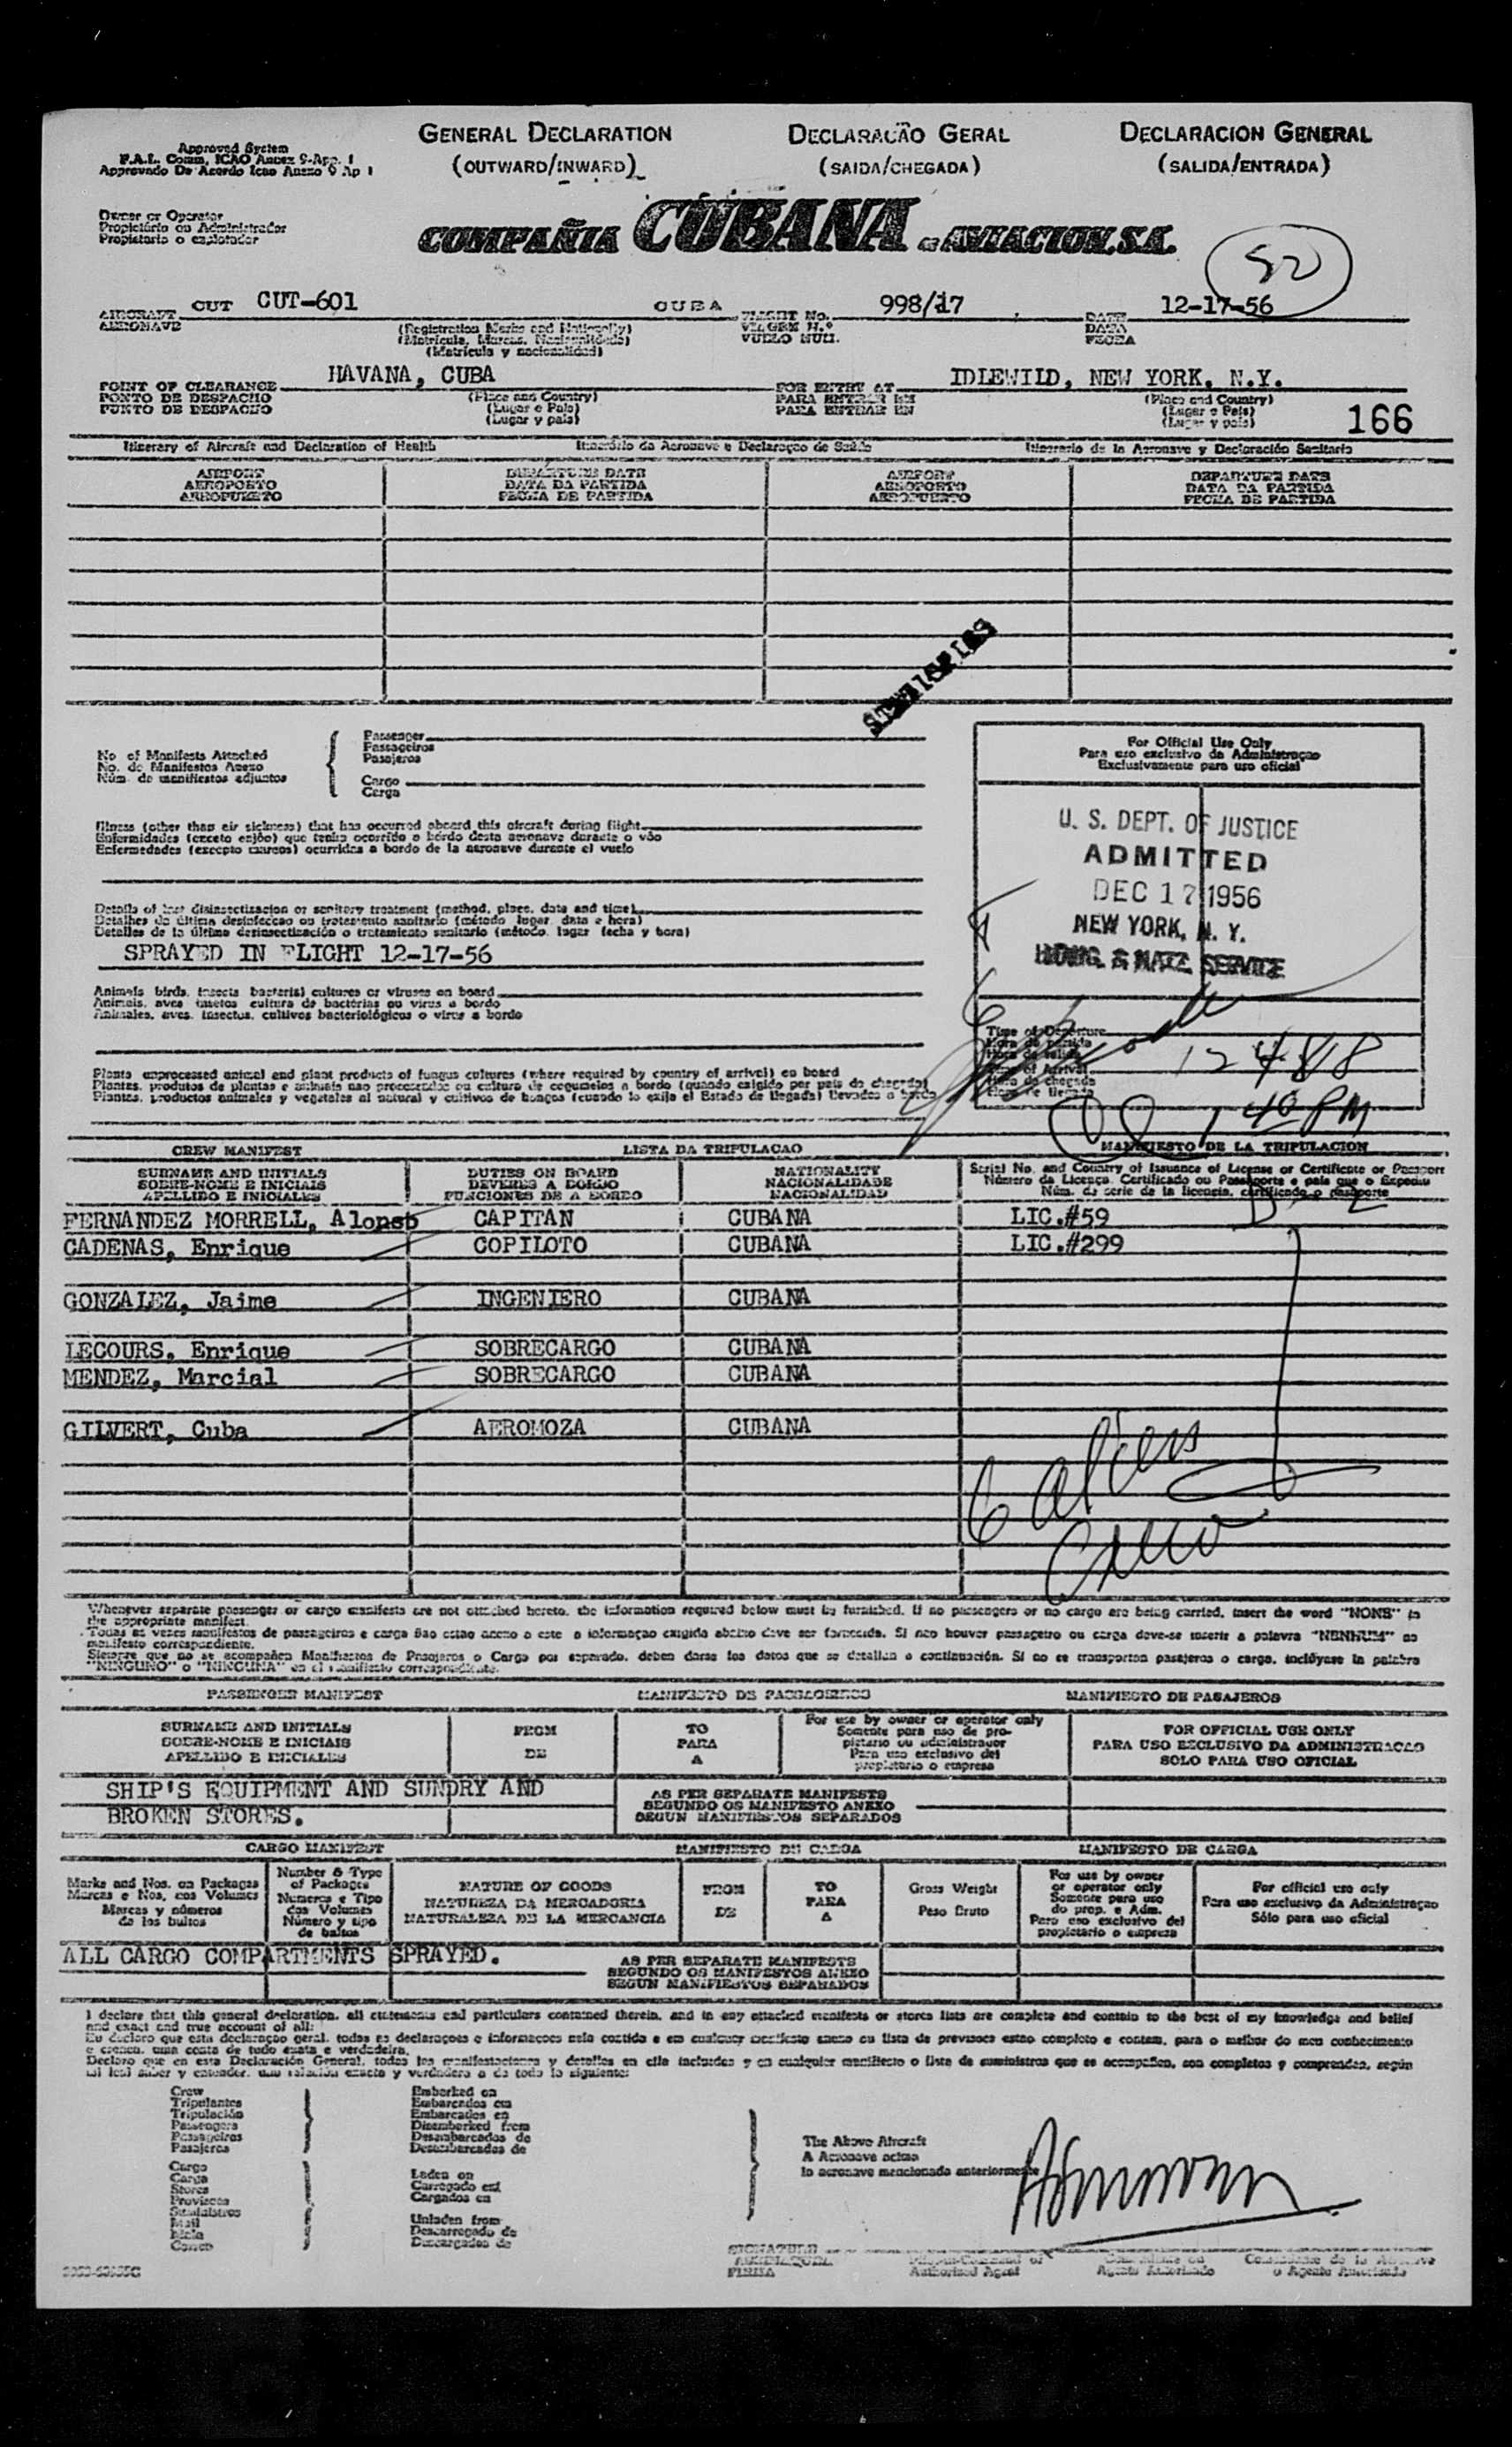 Approved System
F.A.L. Comm, ICAO Annex 9-App. 1
Approvado De Acordo Icao Anexo 9 Ap 1
GENERAL DECLARATION
(OUTWARD/INWARD)
DECLARAÇÃO GERAL
(SAIDA/CHEGADA)
DECLARACION GENERAL
(SALIDA/ENTRADA)
Owner or Operator
Propietário ou Administrador
Propietario o explotador
COMPAÑIA CUBANA DE AVIACION, S.A.
52
AIRCRAFT CUT CUT-601 CUBA
AERONAVE
(Registration Marks and Nationality)
(Matricula, Marcas, Nacionalidade)
(Matricula y nacionalidad)
FLIGHT No. 998/17
VUELO NUM.
DATE 12-17-56
DATA
FECHA
POINT OF CLEARANCE HAVANA, CUBA
PONTO DE DESPACHO
PUNTO DE DESPACHO
(Place and Country)
(Lugar e Pais)
(Lugar y pais)
FOR ENTRY AT IDLEWILD, NEW YORK, N.Y.
PARA ENTRAR EM
PARA ENTRAR EN
(Place and Country)
(Lugar e Pais)
(Lugar y pais)
166
Itinerary of Aircraft and Declaration of Health Itinerário da Aeronave e Declaraçao de Saúde Itinerario de la Aeronave y Declaración Sanitaria
AIRPORT
AEROPORTO
AEROPUERTO
DEPARTURE DATE
DATA DA PARTIDA
FECHA DE PARTIDA
AIRPORT
AEROPORTO
AEROPUERTO
DEPARTURE DATE
DATA DA PARTIDA
FECHA DE PARTIDA
No. of Manifests Attached
No. de Manifestos Anexo
Núm. de manifiestos adjuntos
Passenger
Passageiros
Pasajeros
Cargo
Carga
For Official Use Only
Para uso exclusivo da Administraçao
Exclusivamente para uso oficial
U. S. DEPT. OF JUSTICE
ADMITTED
DEC 17 1956
NEW YORK, N. Y.
IMMIG. & NATZ. SERVICE
Illness (other than air sickness) that has occurred aboard this aircraft during flight
Enfermidades (exceto enjôo) que tenha ocorrido a bórdo desta aeronave durante o vôo
Enfermedades (excepto mareos) ocurridas a bordo de la aeronave durante el vuelo
Details of last disinsectization or sanitary treatment (method, place, date and time)
Detalhes da última desinfeccao ou tratamento sanitario (método, lugar, data e hora)
Detalles de la última desinsectización o tratamiento sanitario (método, lugar fecha y hora)
SPRAYED IN FLIGHT 12-17-56
Animals birds, insects bacterial cultures or viruses on board
Animais, aves insetos cultura de bactérias ou virus a bordo
Animales, aves, insectos, cultivos bacteriológicos o virus a bordo
Time of Departure
Hora de partida
Hora de salida
Time of Arrival
Hora de chegada
Hora de llegada
1 40 PM
Plants unprocessed animal and plant products of fungus cultures (where required by country of arrival) on board
Plantas, produtos de plantas e animais nao processados ou cultura de cogumelos a bordo (quando exigido por pais de chegada)
Plantas, productos animales y vegetales al natural y cultivos de hongos (cuando lo exija el Estado de llegada) llevados a bordo
CREW MANIFEST LISTA DA TRIPULACAO MANIFIESTO DE LA TRIPULACION
SURNAME AND INITIALS
SOBRE-NOME E INICIAIS
APELLIDO E INICIALES
DUTIES ON BOARD
DEVERES A BORDO
FUNCIONES DE A BORDO
NATIONALITY
NACIONALIDADE
NACIONALIDAD
Serial No. and Country of Issuance of License or Certificate or Passport
Número da Licença, Certificado ou Passaporte e pais que o Expediu
Núm. de serie de la licencia, certificado o pasaporte
FERNANDEZ MORRELL, Alonso CAPITAN CUBANA LIC.#59
CADENAS, Enrique COPILOTO CUBANA LIC.#299
GONZALEZ, Jaime INGENIERO CUBANA
LECOURS, Enrique SOBRECARGO CUBANA
MENDEZ, Marcial SOBRECARGO CUBANA
GILVERT, Cuba AEROMOZA CUBANA
6 aliens
crew
Whenever separate passenger or cargo manifests are not attached hereto, the information required below must be furnished. If no passengers or no cargo are being carried, insert the word "NONE" in
the appropriate manifest.
Todas as vezes manifestos de passageiros e carga nao estao anexo a este a informaçao exigida abaixo deve ser fornecida. Si nao houver passageiro ou carga deve-se inserir a palavra "NENHUM" no
manifesto correspondiente.
Siempre que no se acompañen Manifiestos de Pasajeros o Carga por separado, deben darse los datos que se detallan a continuación. Si no se transportan pasajeros o carga, inclúyase la palabra
"NINGUNO" o "NINGUNA" en el manifiesto correspondiente.
PASSENGER MANIFEST MANIFESTO DE PASSAGEIROS MANIFIESTO DE PASAJEROS
SURNAME AND INITIALS
SOBRE-NOME E INICIAIS
APELLIDO E INICIALES
FROM
DE
TO
PARA
A
For use by owner or operator only
Somente para uso de pro-
pietario ou administrador
Para uso exclusivo del
propietario o empresa
FOR OFFICIAL USE ONLY
PARA USO EXCLUSIVO DA ADMINISTRACAO
SOLO PARA USO OFICIAL
SHIP'S EQUIPMENT AND SUNDRY AND
BROKEN STORES.
AS PER SEPARATE MANIFESTS
SEGUNDO OS MANIFESTO ANEXO
SEGUN MANIFIESTOS SEPARADOS
CARGO MANIFEST MANIFIESTO DE CARGA MANIFESTO DE CARGA
Marks and Nos. on Packages
Marcas e Nos. cos Volumes
Marcas y números
de los bultos
Number & Type
of Packages
Numeros e Tipo
dos Volumes
Número y tipo
de bultos
NATURE OF GOODS
NATUREZA DA MERCADORIA
NATURALEZA DE LA MERCANCIA
FROM
DE
TO
PARA
A
Gross Weight
Peso Bruto
For use by owner
or operator only
Somente para uso
do prop. e Adm.
Para uso exclusivo del
propietario o empresa
For official use only
Para uso exclusivo da Administraçao
Sólo para uso oficial
ALL CARGO COMPARTMENTS SPRAYED.
AS PER SEPARATE MANIFESTS
SEGUNDO OS MANIFESTOS ANEXO
SEGUN MANIFIESTOS SEPARADOS
I declare that this general declaration, all statements and particulars contained therein, and in any attached manifests or stores lists are complete and contain to the best of my knowledge and belief
and exact and true account of all:
Eu declaro que esta declaraçao geral, todas as declaraçoes e informacoes nela contida e em cualquer manifesto anexo ou lista de previsoes estao completo e contem, para o melhor do meu conhecimento
e crenca, uma conta de tudo exata e verdadeira.
Declaro que en esta Declaración General, todas las manifestaciones y detalles en ella incluidos y en cualquier manifiesto o lista de suministros que se acompañen, son completos y comprenden, según
mi leal saber y entender, una relación exacta y verdadera a de todo lo siguiente:
Crew
Tripulantes
Tripulación
Passengers
Passageiros
Pasajeros
Cargo
Carga
Stores
Suministros
Mail
Mala
Correo
Embarked on
Embarcados em
Embarcados en
Disembarked from
Desembarcados de
Desembarcados de
Laden on
Carregado em
Cargados en
Unladen from
Descarregado de
Descargados de
The Above Aircraft
A Aeronave acima
la aeronave mencionada anteriormente
SIGNATURE
FIRMA
Pilot-in-Command or
Authorized Agent
Agente Autorizado
Comandante de la Aeronave
o Agente Autorizado